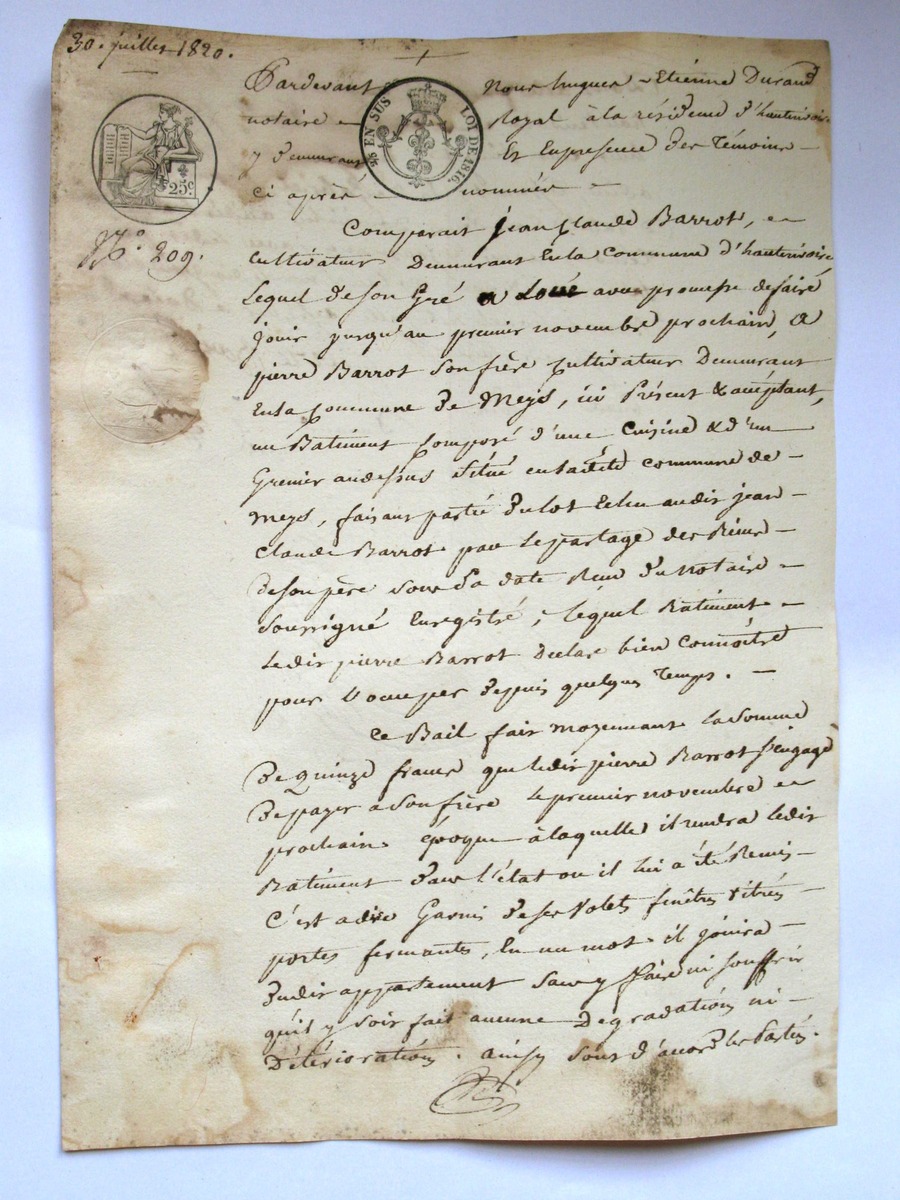 30. juillet 1820.
Pardevant Nous hugues - Etienne Durand
notaire Royal à la résidence d'hauterivoire
y demeurant Et En presence des Témoins
ci après nommés
¼ EN SUS LOI DE 1816.
25c
N.° 209.
Comparait jean Claude Barrot, 
Cultivateur Demeurant En la Commune d'hauterivoire
Lequel de son Gré a Loué avec promesse de faire
jouir jusqu'au premier novembre prochain, a
pierre Barrot son frère Cultivateur Demeurant
En la Commune de Meys, ici Présent & acceptant,
un Batiment Composé d'une Cuisine & d'un
Grenier au dessus situé en ladite commune de
Meys, faisant partie du lot Echu audit jean
Claude Barrot par le partage des Biens
de son père sous sa date Reçu du Notaire
soussigné Enregistré, lequel Batiment
Ledit pierre Barrot Declare bien Connoitre
pour l'occuper depuis quelques Temps.
Ce Bail fait moyennant la somme
de Quinze francs que ledit pierre Barrot s'engage
de payer a son frère le premier novembre
prochain époque à laquelle il rendra ledit
Batiment dans l'état ou il lui a été Remis
C'est a dire Garnis de ses Volets fenêtres vitrés
portes fermantes, En un mot il jouira
dudit appartement sans y faire ni souffrir
qu'il y soit fait aucune Degradation ni
Détérioration. ainsy sont d'accord les Parties.